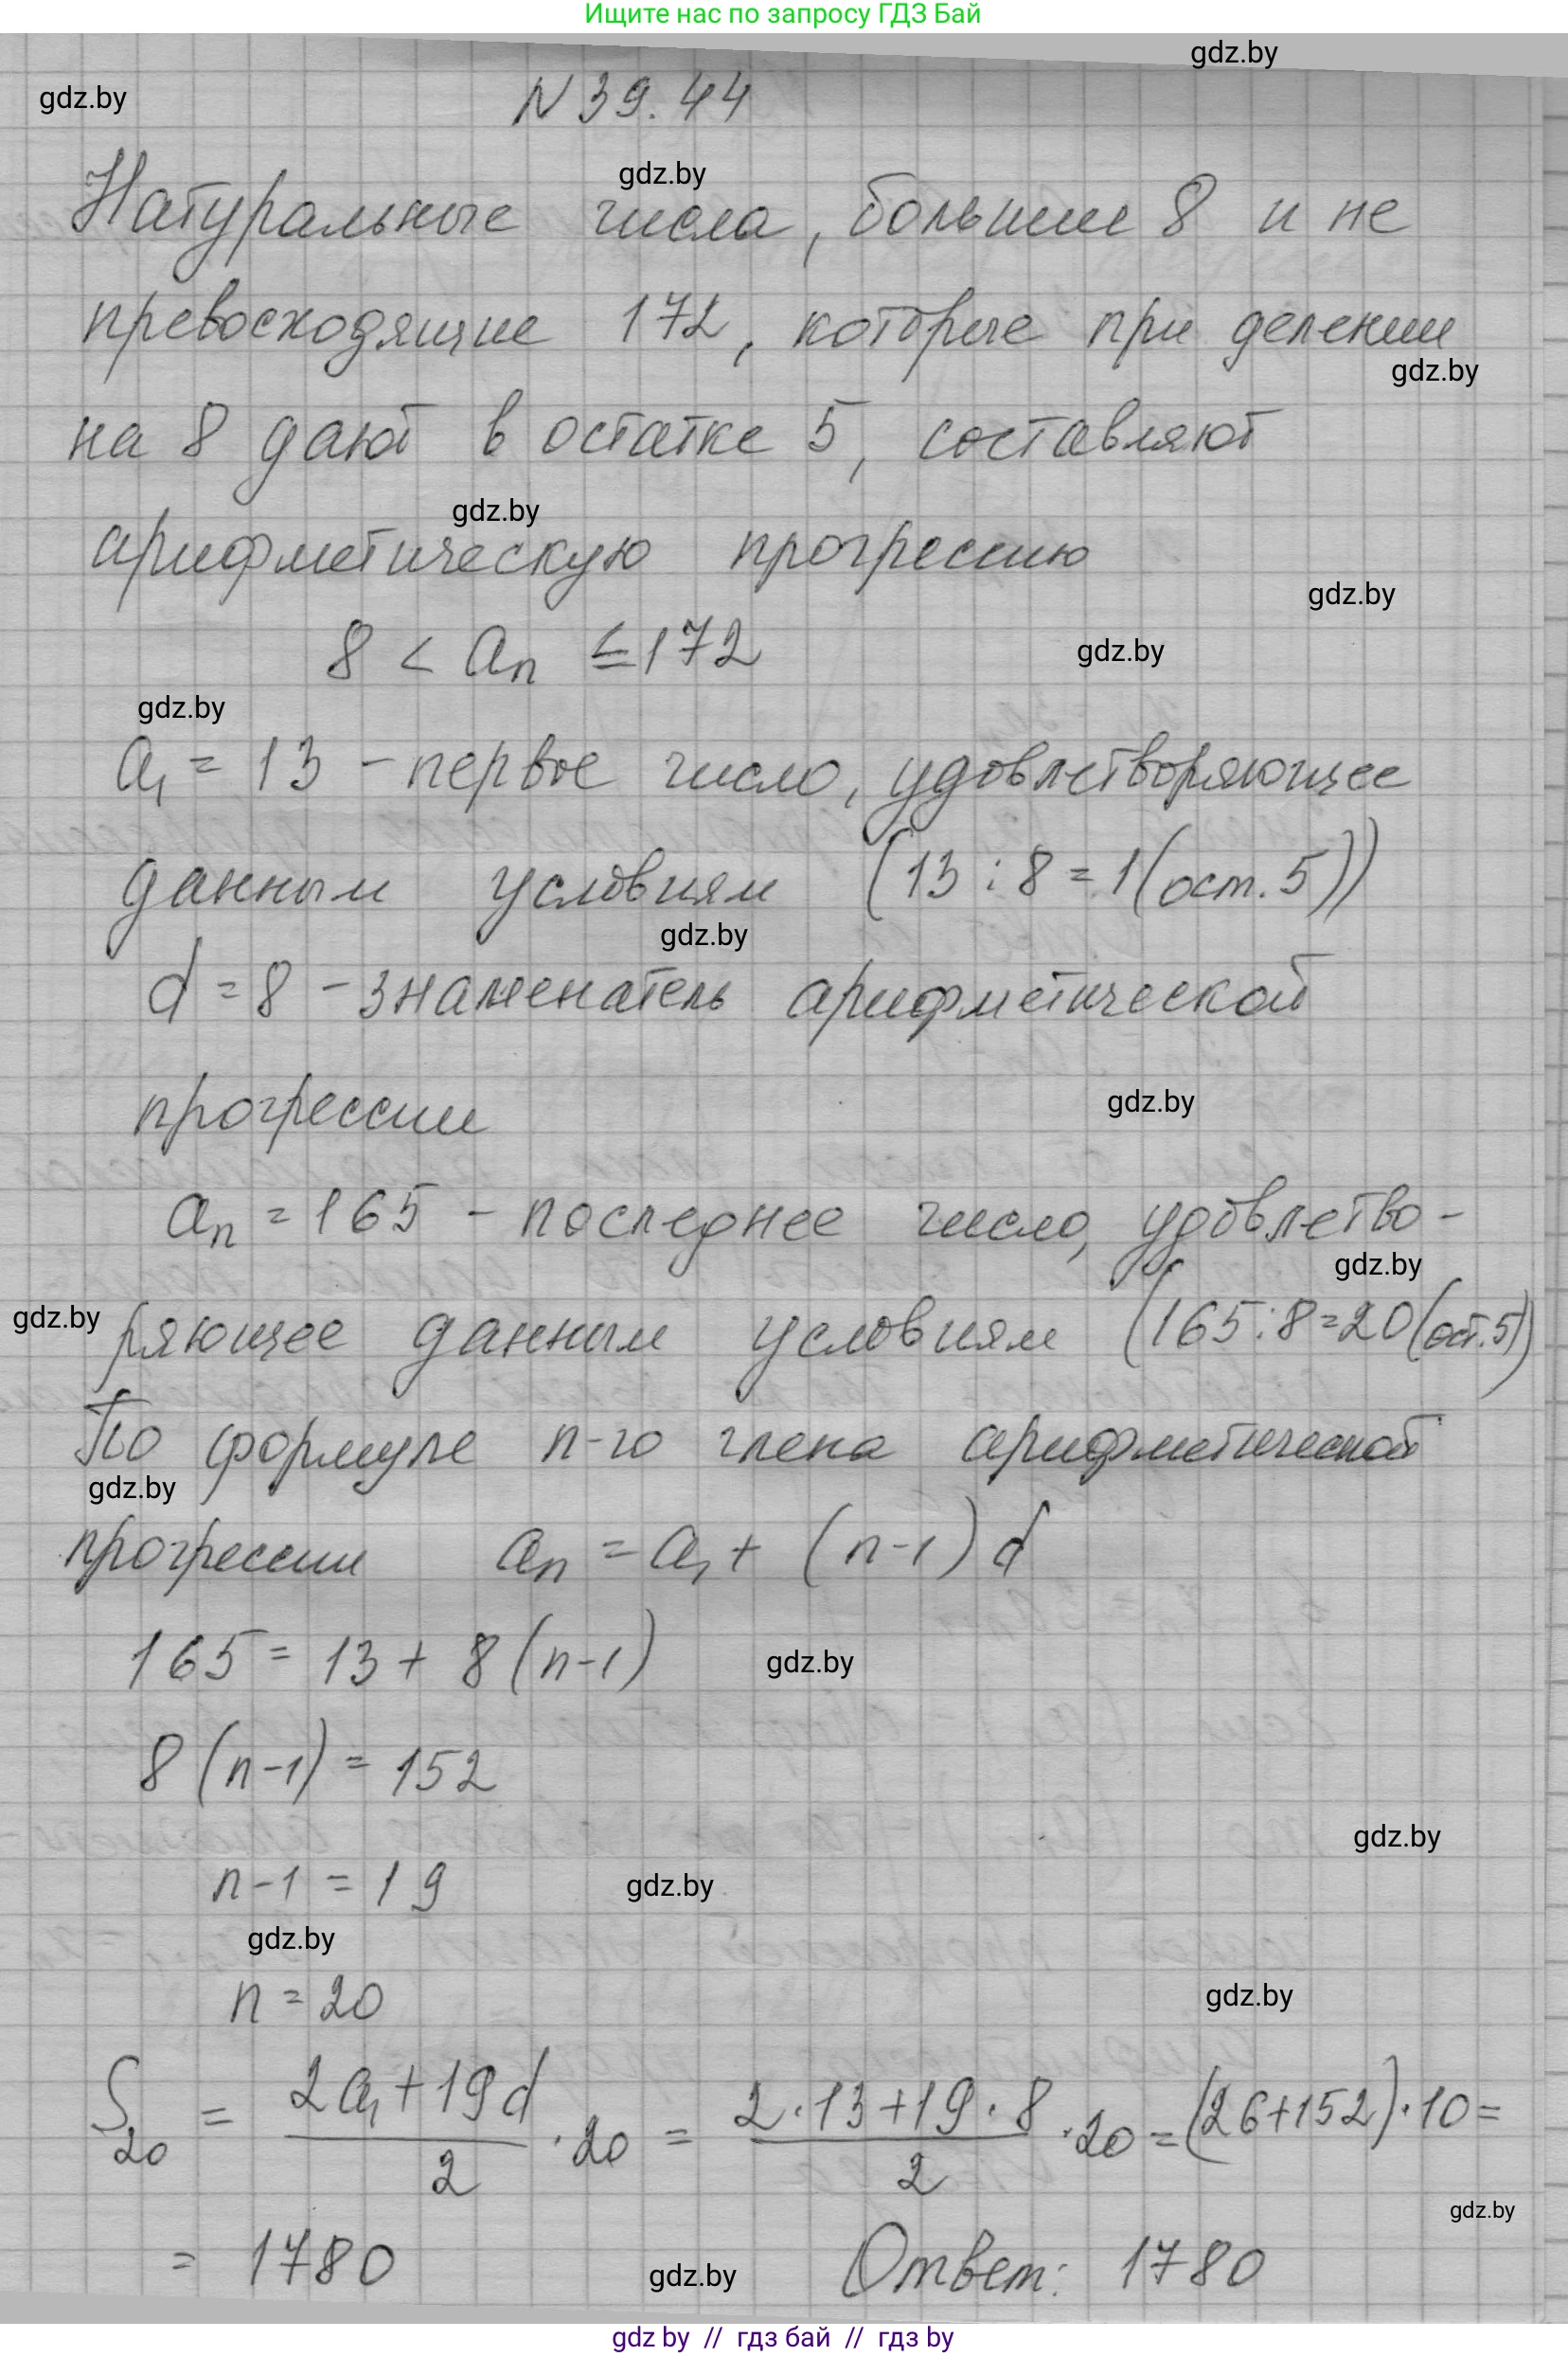 Ищите нас по запросу ГДЗ Бай
gdz.by
gdz.by
N 39.44
gdz.by
Натуральные числа, большие 8 и не
превосходящие 172, которые при делении
gdz.by
на 8 дают в остатке 5, составляют
gdz.by
арифметическую прогрессию
gdz.by
8 < aₙ ≤ 172
gdz.by
gdz.by
a₁ = 13 – первое число, удовлетворяющее
данным условиям (13 : 8 = 1 (ост. 5))
gdz.by
d = 8 – знаменатель арифметической
прогрессии
gdz.by
aₙ = 165 – последнее число, удовлетво-
gdz.by
gdz.by
ряющее данным условиям (165 : 8 = 20 (ост. 5))
По формуле n-го члена арифметической
gdz.by
прогрессии aₙ = a₁ + (n-1) d
165 = 13 + 8 (n-1)
gdz.by
8 (n-1) = 152
gdz.by
n-1 = 19
gdz.by
gdz.by
n = 20
gdz.by
S₂₀ = (2a₁ + 19d)/2 · 20 = (2·13 + 19·8)/2 · 20 = (26+152)·10 =
gdz.by
= 1780 Ответ: 1780
gdz.by
gdz by // гдз бай // гдз by